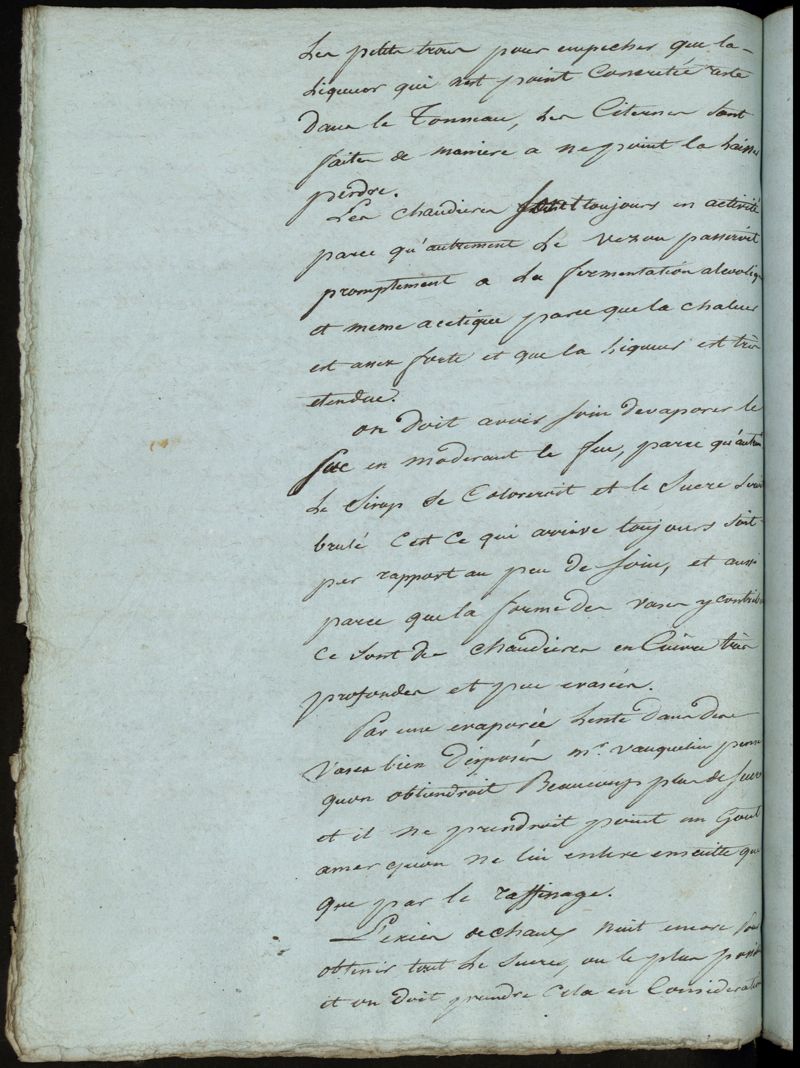 Les petits trous pour empecher que la-
Liqueur qui n'est point Concretée reste
Dans le Tonneau, Les Citernes sont
faites de maniere a ne point la laisser
perdre.
Les chaudieres sont toujours en activité
parce qu'autrement Le vezou passeroit
promptement a La fermentation alcoolique
et meme acetique parce que la chaleur
est assez forte et que la Liqueur est très
etendue.
on Doit avoir soin devaporer le
suc en moderant le feu, parce qu'autrem
Le sirop se Coloreroit et le sucre seroit
brulé C'est Ce qui arrive toujours soit
per rapport au peu de soin, et aussi
parce que la forme des vases y contribue
Ce sont des chaudieres en Cuivre très
profondes et peu evasées.
Par une evaporée Lente dans des
vases bien Disposés mr. vauquelin pense
quon obtiendroit Beaucoup plus de sucre
et il ne prendroit point un Gout
amer quon ne lui enleve ensuitte que
que par le raffinage.
L'exces de chaux nuit encore pour
obtenir tout Le sucre, ou le plus possible
et on doit prendre Cela en Consideration